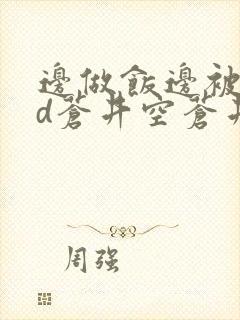 邊做飯邊被
d蒼井空蒼井
周强